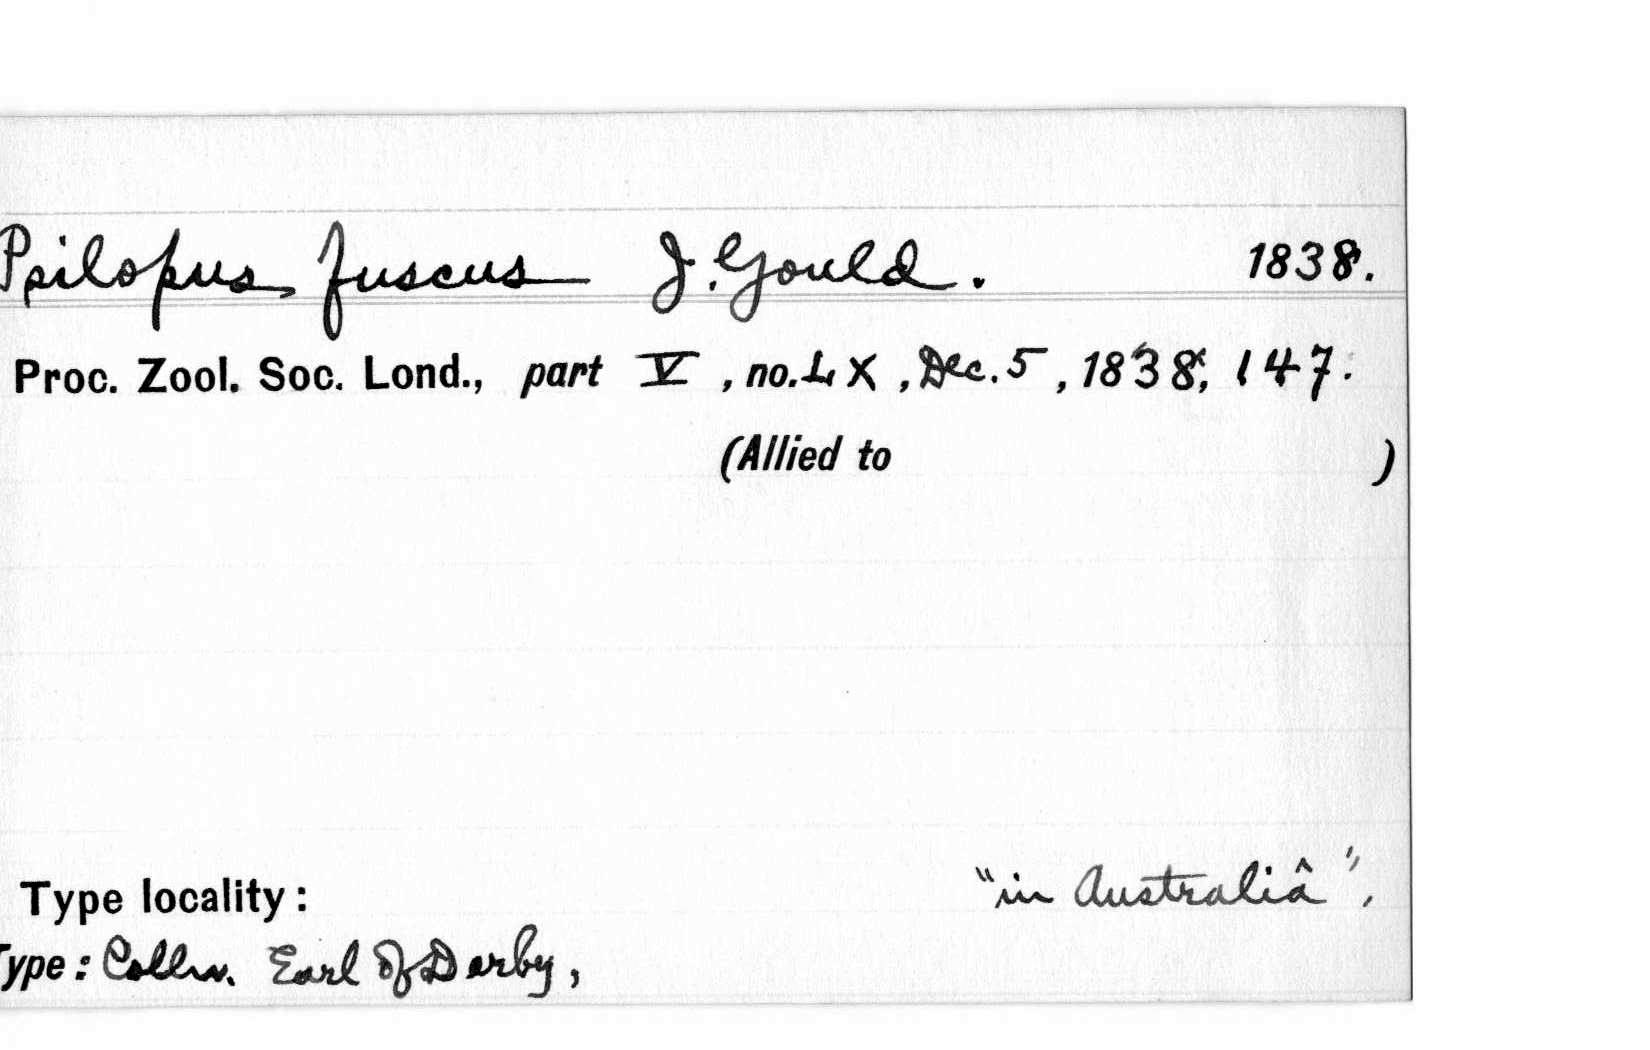 Psilopus fuscus J. Gould. 1838.
Proc. Zool. Soc. Lond., part V, no. LX, Dec. 5, 1838, 147.
(Allied to )
Type locality: "in Australiâ".
Type: Colln. Earl of Darby,